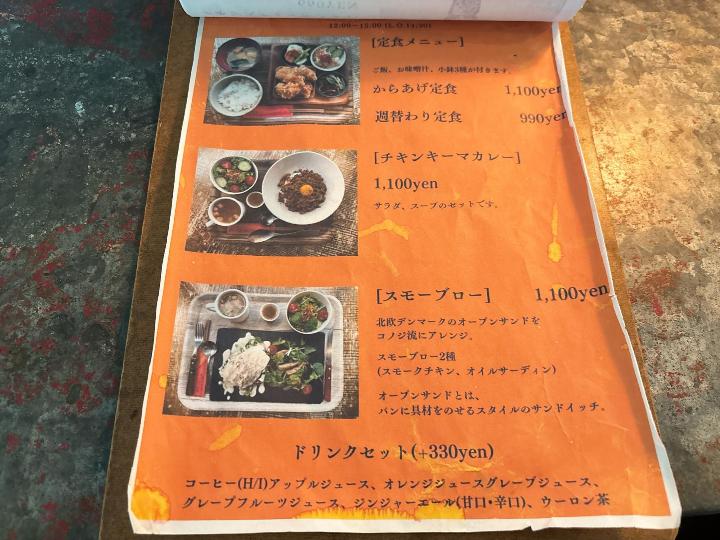 12:00~15:00 (L.O.14:30)
[定食メニュー]
ご飯、お味噌汁、小鉢3種が付きます。
からあげ定食 1,100yen
週替わり定食 990yen
[チキンキーマカレー]
1,100yen
サラダ、スープのセットです。
[スモーブロー] 1,100yen
北欧デンマークのオープンサンドを
コノジ流にアレンジ。
スモーブロー2種
(スモークチキン、オイルサーディン)
オープンサンドとは、
パンに具材をのせるスタイルのサンドイッチ。
ドリンクセット(+330yen)
コーヒー(H/I)アップルジュース、オレンジジュースグレープジュース、
グレープフルーツジュース、ジンジャーエール(甘口・辛口)、ウーロン茶